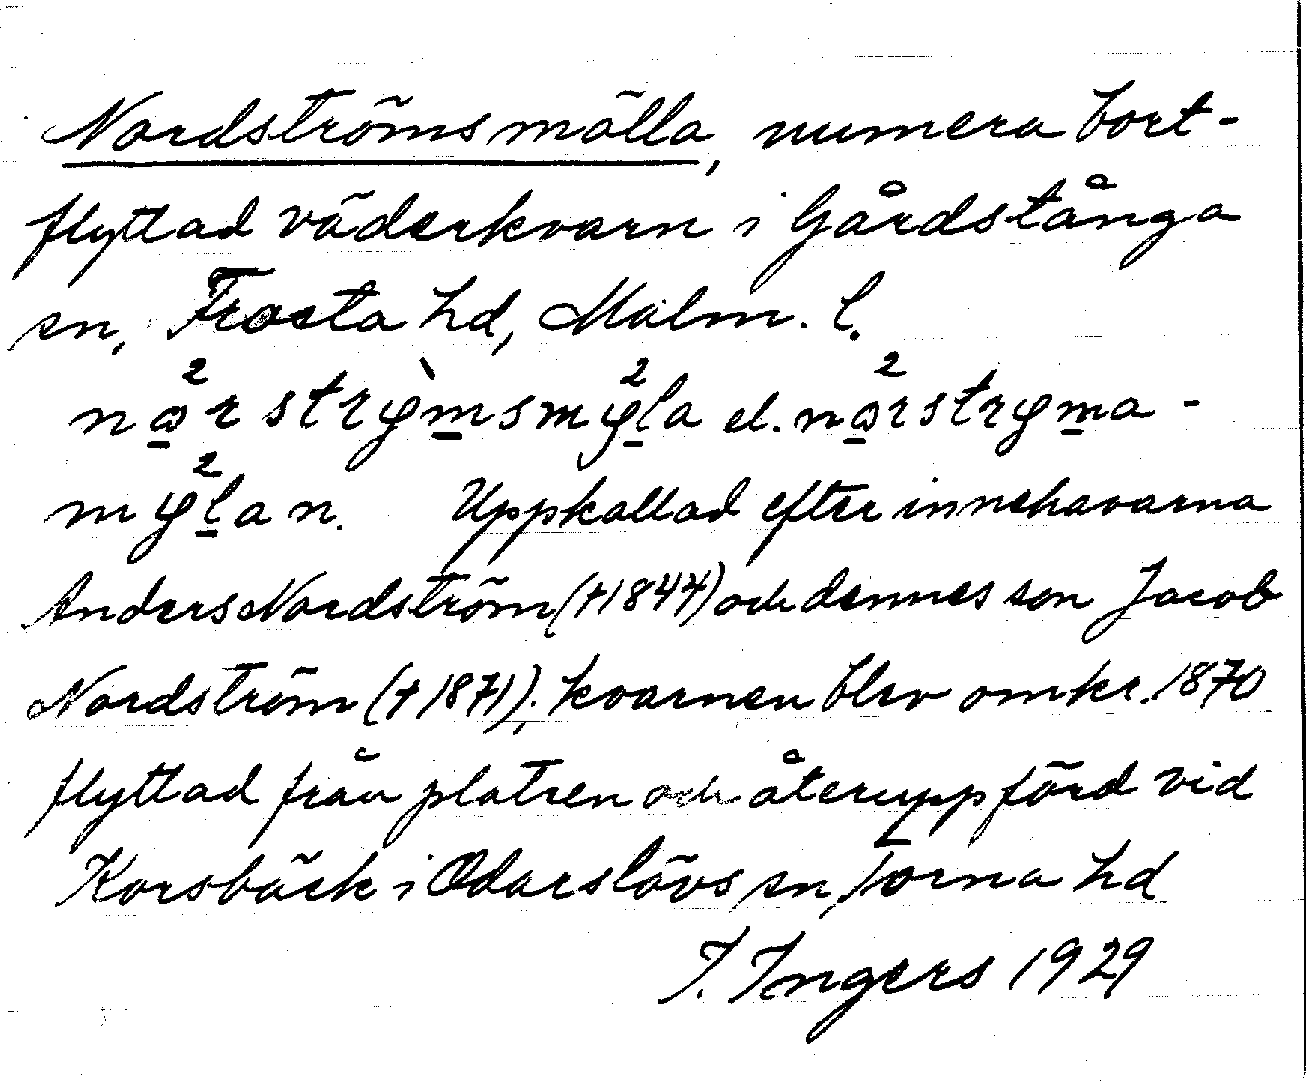 Nordströms mölla, numera bort-
flyttad väderkvarn i Gårdstånga
sn, Frosta hd, Malm. l.
nǫ²rstrφ̀m̱smφ²ḻa el. nǫ²rstrφm̱a-
mφ²ḻan. Uppkallad efter innehavarna
Anders Nordström (†1844) och dennes son Jacob
Nordström (†1871); kvarnen blev omkr. 1870
flyttad från platsen och återuppförd vid
Korsbäck i Odarslövs sn, Torna hd
I. Ingers 1929